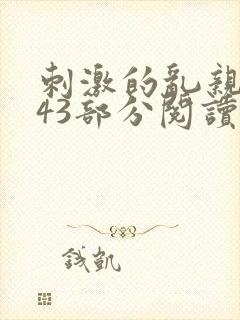 刺激的亂親
43部分閱讀
錢凱